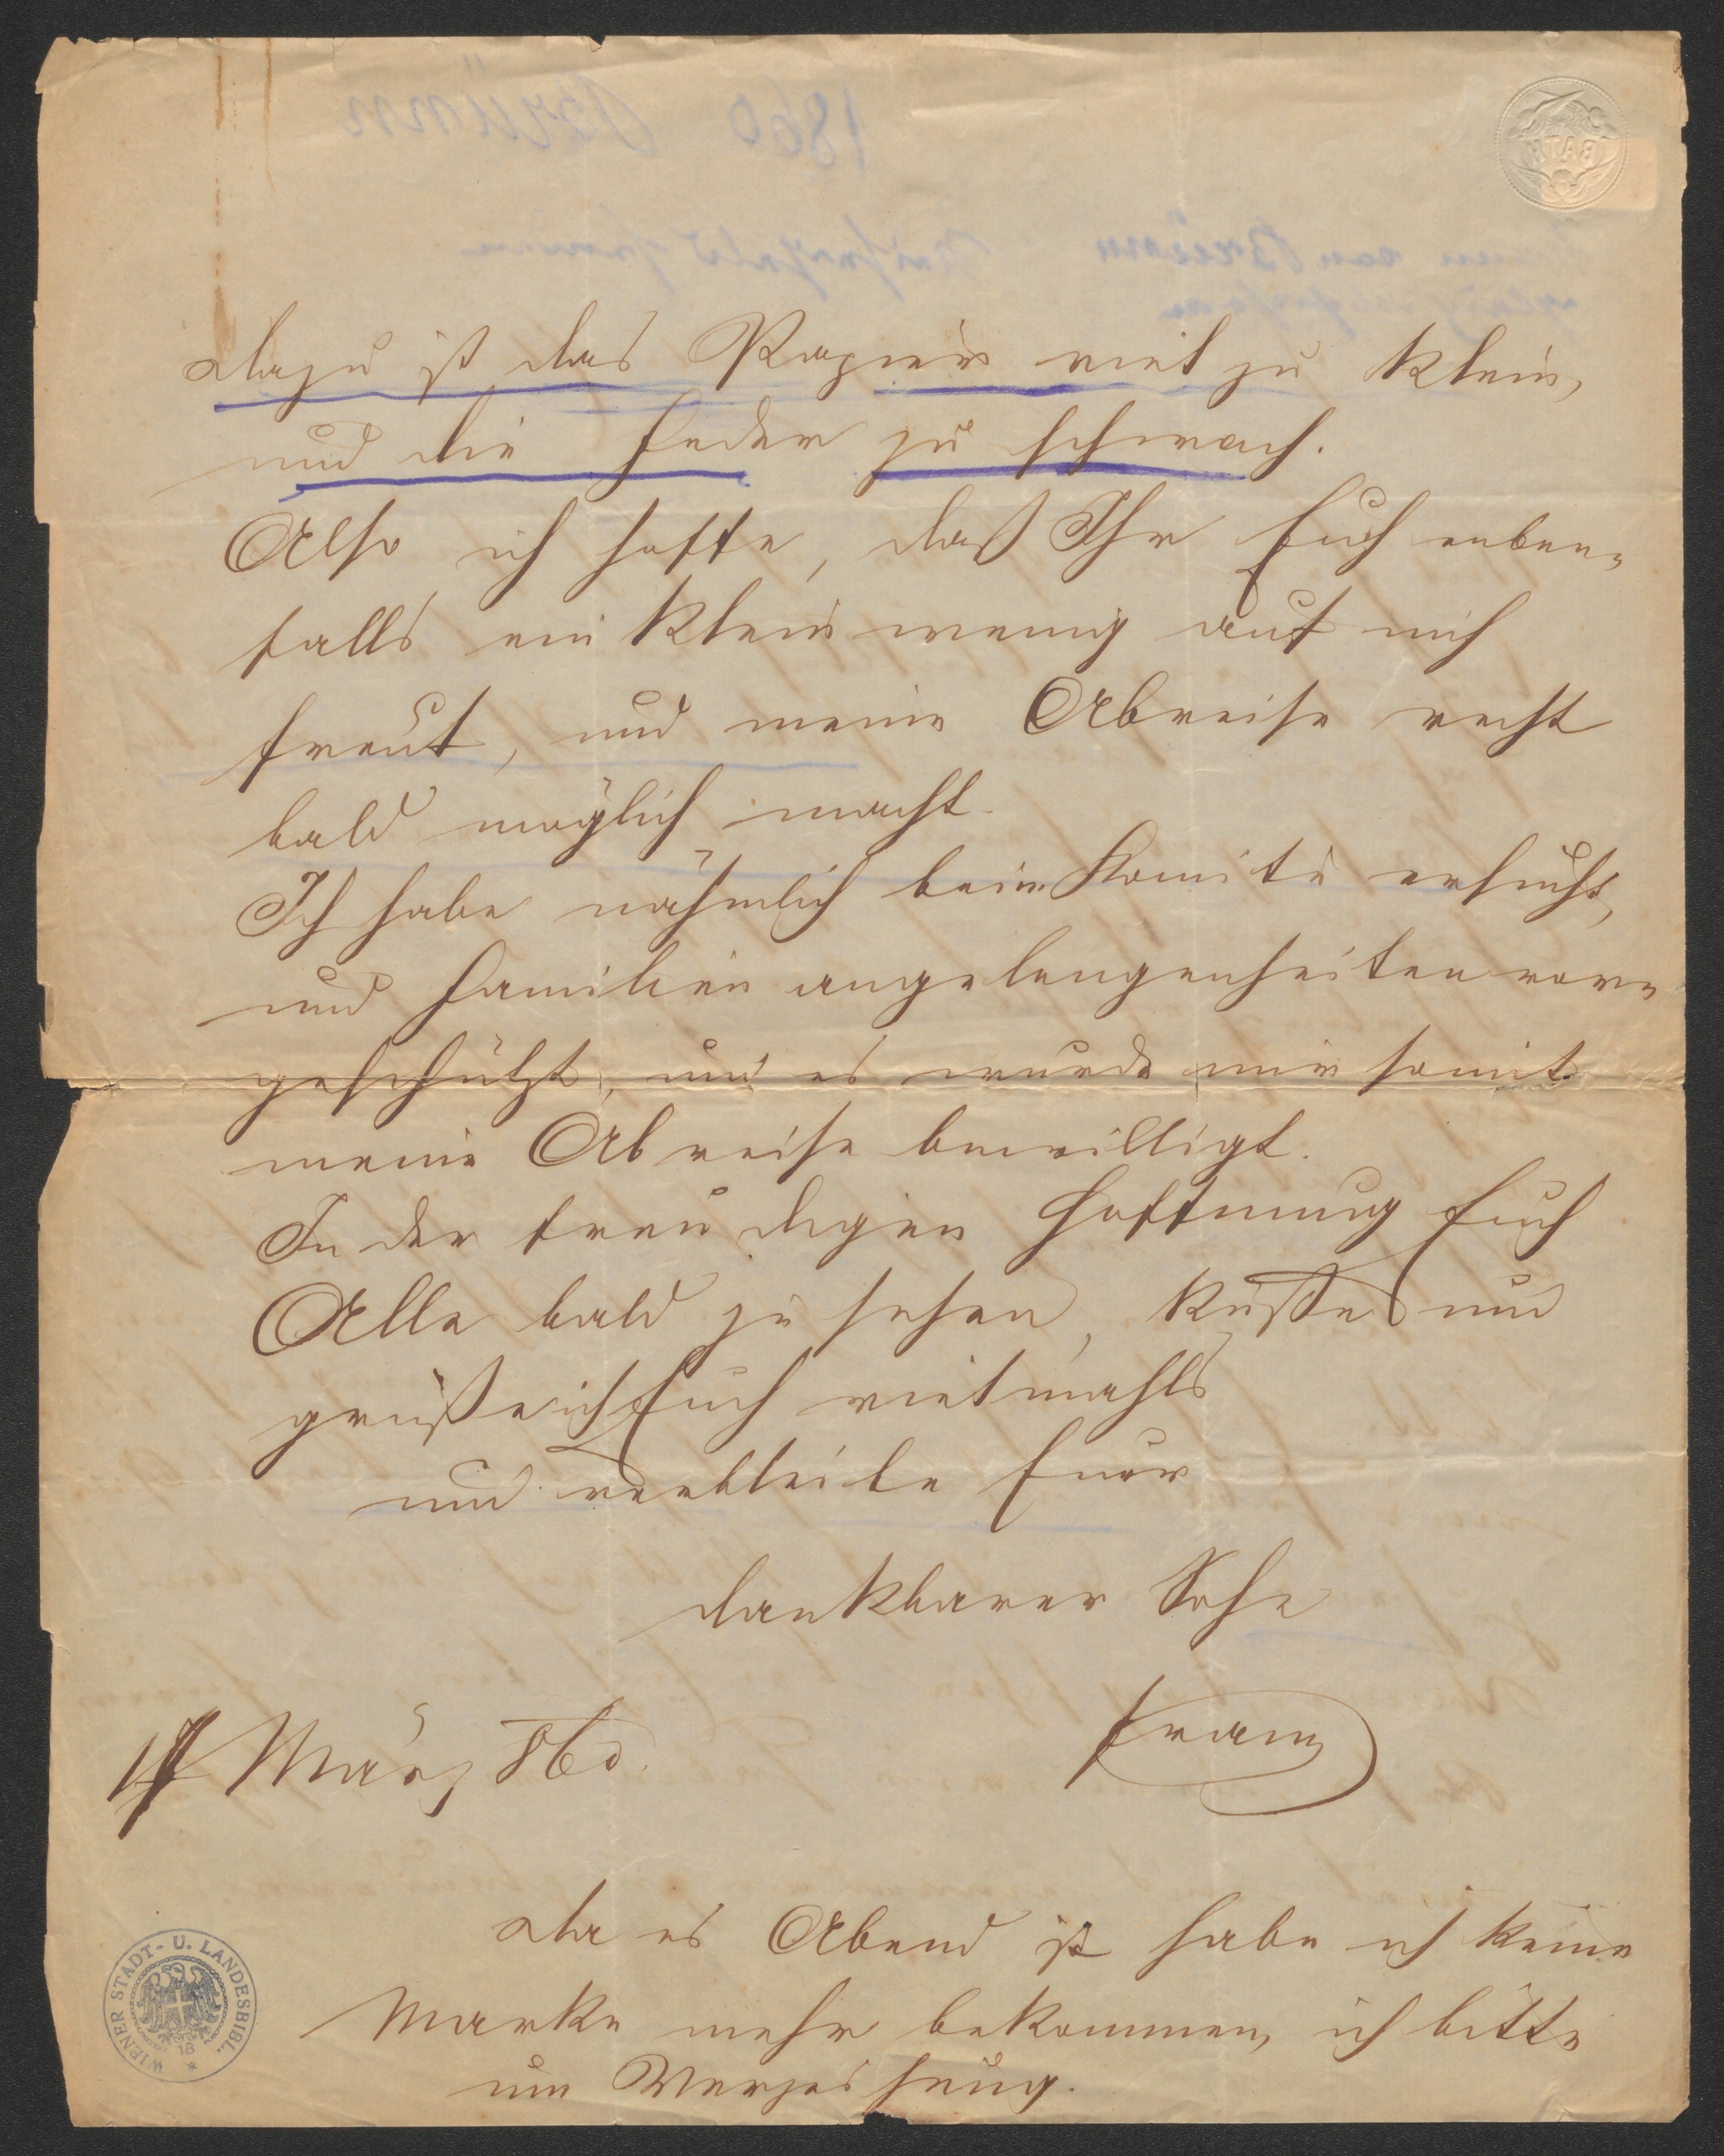 dazu ist das Papier viel zu klein,
und die Feder zu schwach.
Also ich hoffe, daß Ihr Euch eeben-
falls ein klein wenig auf mich
freut, und meine Abreise recht
bald möglich macht.
Ich habe nähmlich beim Komite ersucht,
und Familien angelengenheiten vor-
geschützt, und es wurde mir somit
meine Abreise bewilligt.
In der freudigen Hoffnung Euch
Alle bald zu sehen, küße und
grüße ich Euch vielmahls
und verbleibe Euer
dankbarer Sohn
Franz
17 März 860.
Da es Abend ist habe ich keine
Marke mehr bekommen, ich bitte
um Verzeihung.
WIENER STADT- U. LANDESBIBL.
BATH